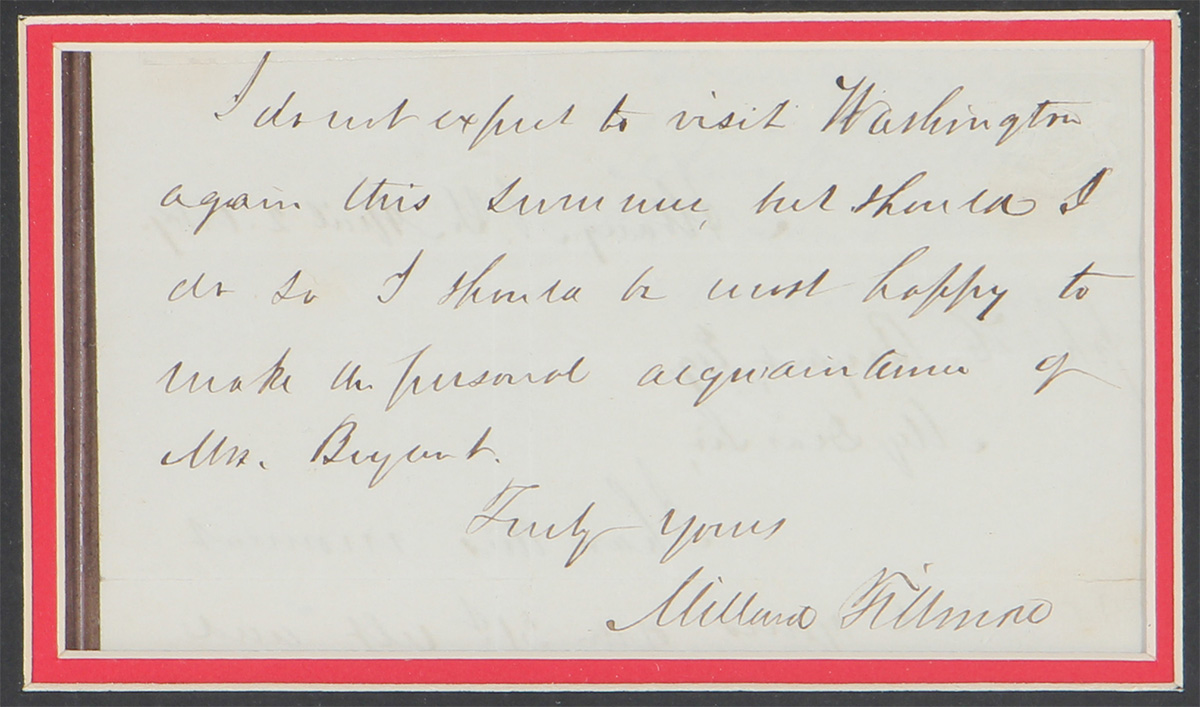 I do not expect to visit Washington
again this summer, but should I
do so I should be most happy to
make the personal acquaintance of
Mrs. Bryant.
Truly yours
Millard Fillmore